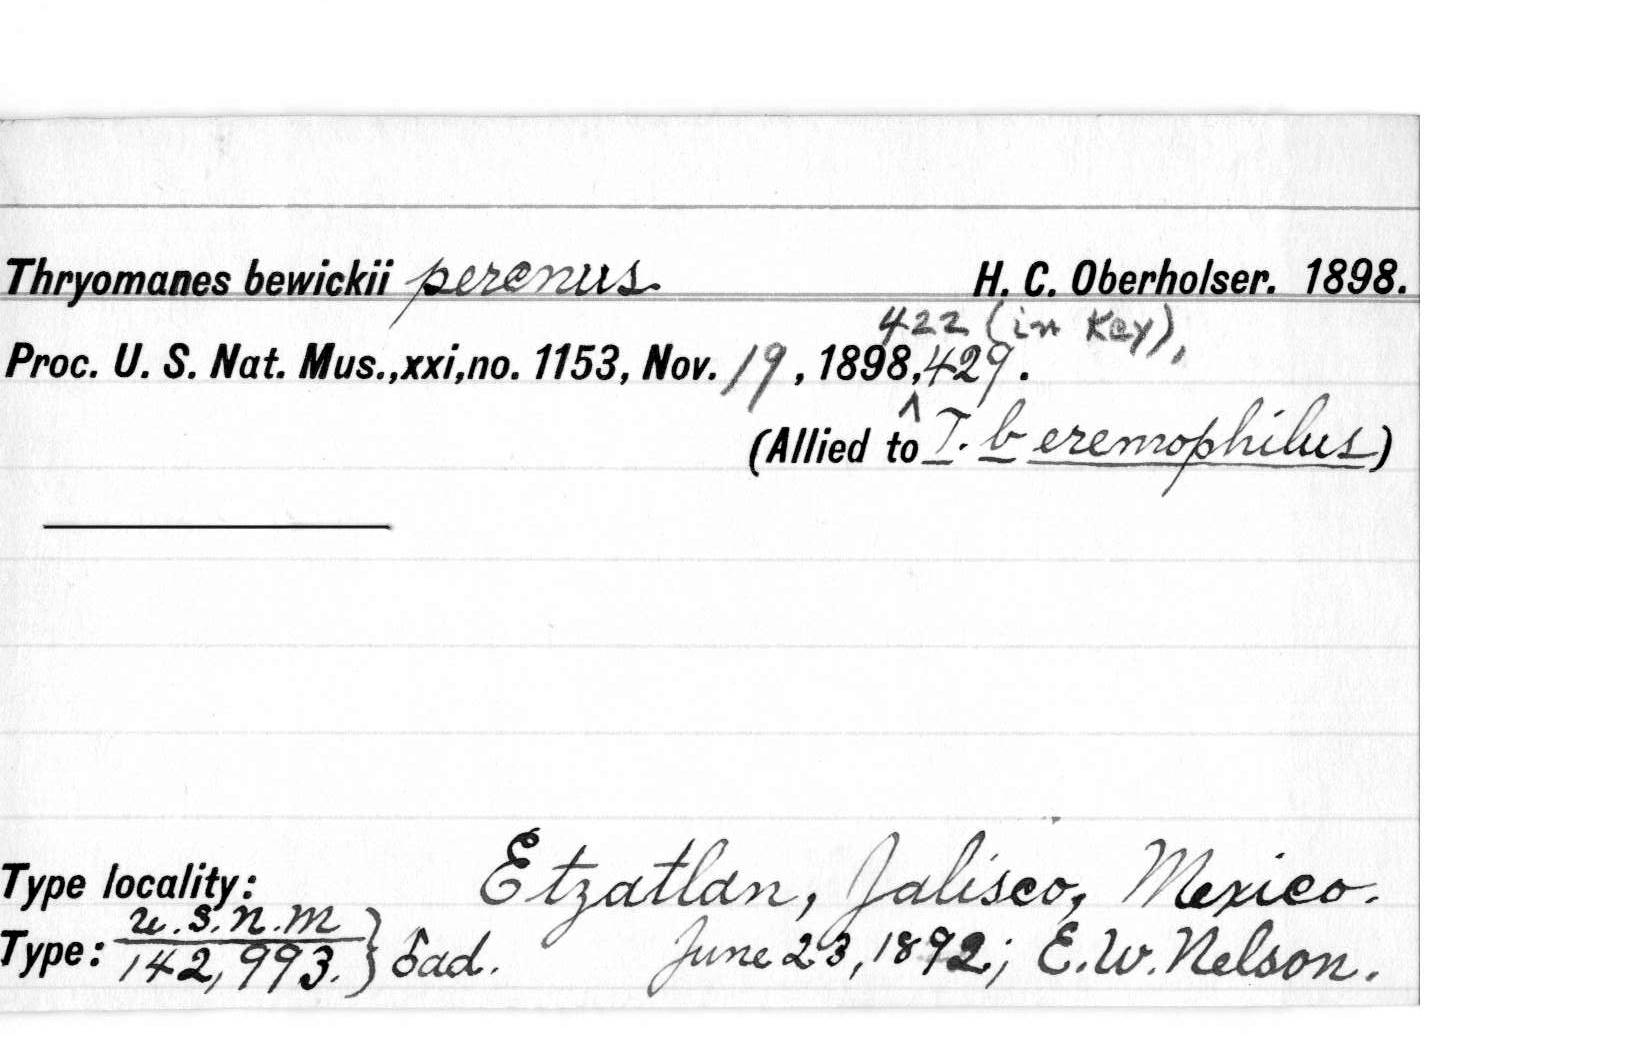 Thryomanes bewickii percnus. H. C. Oberholser. 1898.
422 (in Key),
Proc. U. S. Nat. Mus., xxi, no. 1153, Nov. 19, 1898, ^ 429.
(Allied to T. b eremophilus)
Type locality: Etzatlan, Jalisco, Mexico.
U.S.N.M
Type: 142,993. } ♂ad. June 23, 1892; E.W. Nelson.